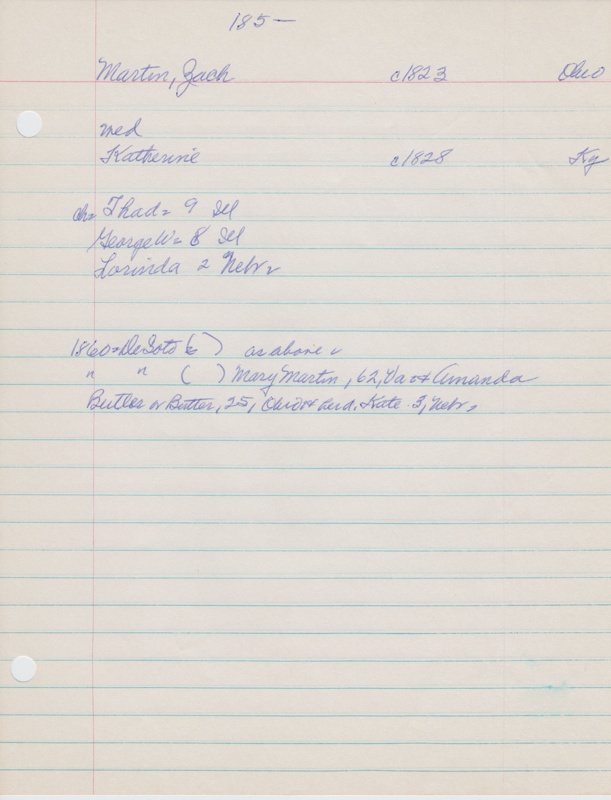 185-
Martin, Zach c1823 Ohio
med
Katherine c1828 Ky
ch= Thad= 9 Ill
George W= 8 Ill
Lorinda 2 Nebr
1860=DeSoto ( ) as above
" " ( ) Mary Martin, 62, Va & Amanda
Butler or Butter, 25, Ohio & Kate 3, Nebr